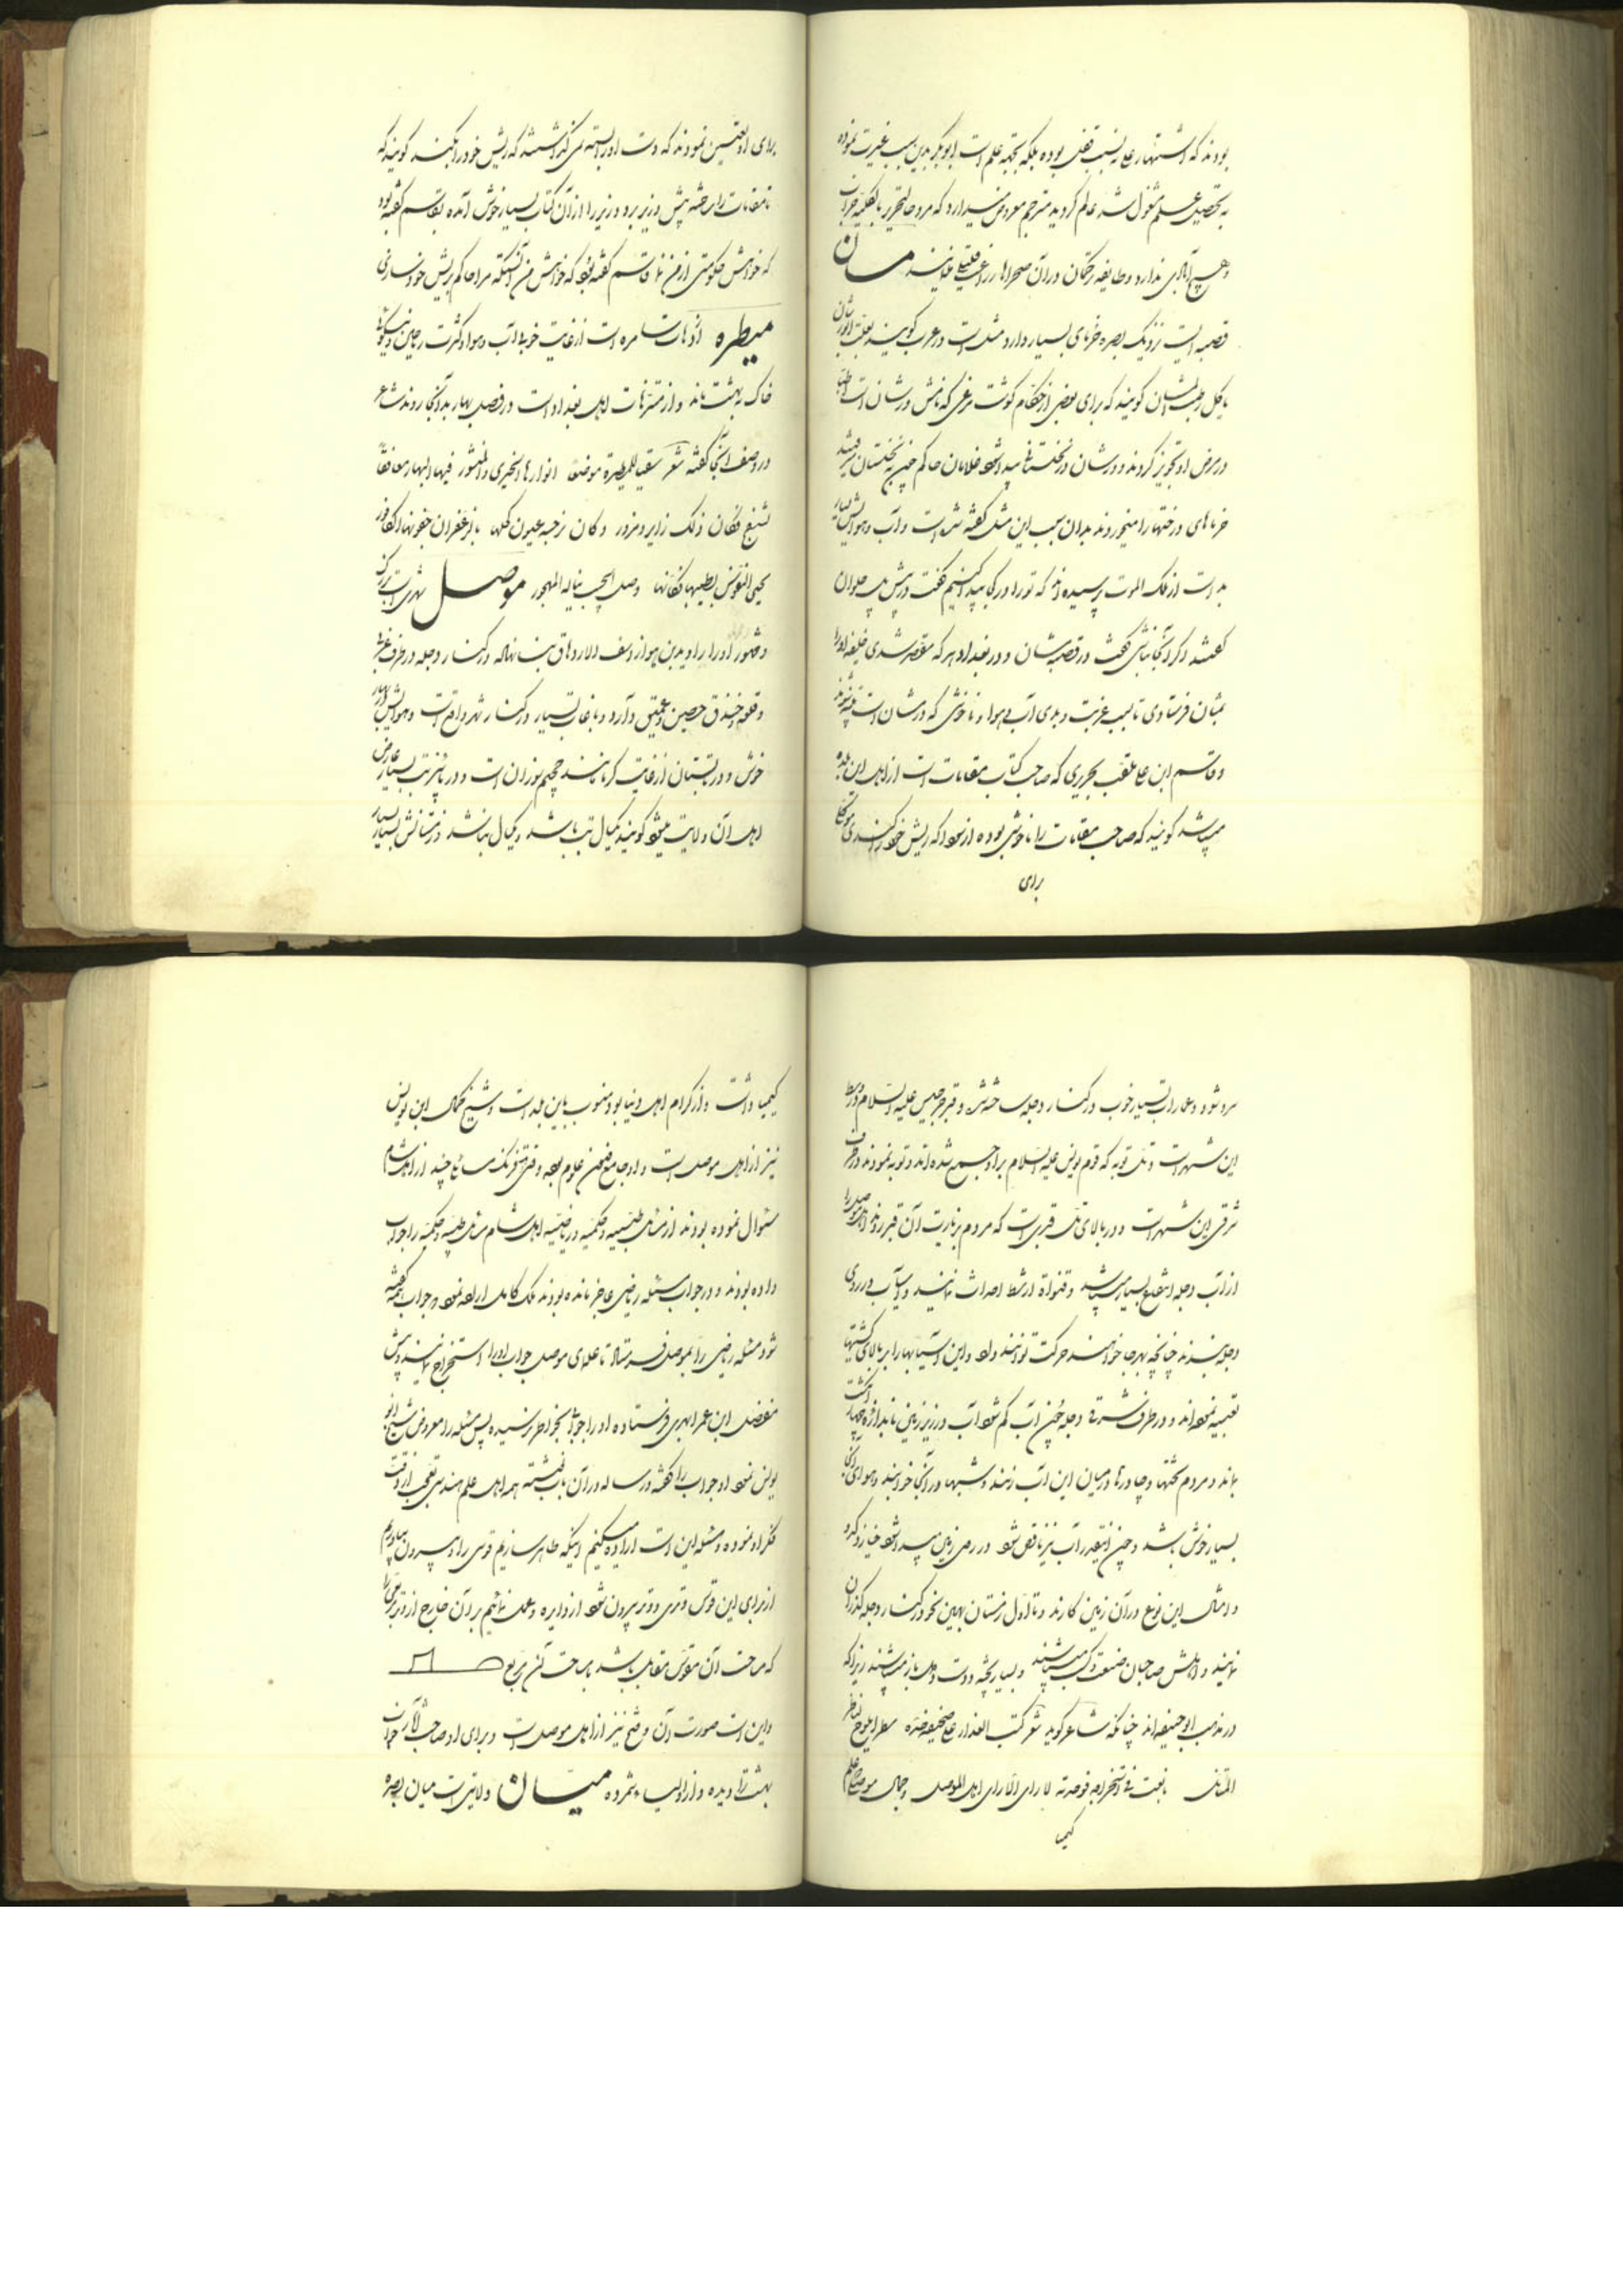 بودند که اشتهار علما نه بسبب قفل بوده بلکه بجهة علم است ابوبکر بدین سبب غیرت نموده
به تحصیل علم مشغول شد عالم کردید مترجم معروض میدارد که مرو حال تحریر بالکلیه خراب
و هیچ آبادی ندارد و طایفه ترکمان در آن صحراها زراعت قلیلی نمایند مسان
قصبه ایست نزدیک بصره خرمای بسیار دارد مثل است در عرب کویند بعلة الورشان
یاکل رطب المشان کویند که برای بعضی از حکام کوشت مرغی که نامش ورشان است اطبا
در مرض او تجویز کردند و ورشان در نخلستانها پیدا شود غلامان حاکم چون به نخلستان میرفتند
خرماهای درختها را میخوردند بدان سبب این مثل کفته شده است و آب و هوایش بسیار
بد است از ملک الموت پرسیده اند که تو را در کجا پیدا کنیم کفت در پیش پل حلوان
کفتند اکر آنجا نباشی کفت در قصبه مشان و در بغداد هر که مقصر شدی خلیفه او را
بمشان فرستادی تا بسبب غربت و بدی آب و هوا و ناخوشی که در مشان است تنبیه شوند
و قاسم ابن علی ملقب بحریری که صاحب کتاب مقامات است از اهل این بلده
میباشد کویند که صاحب مقامات را ناخوشی بوده از سودا که ریش خود کندی موکلی
برای
برای او تعیین نمودند که دست او را بسته نمی کذاشتند که ریش خود را بکند کویند که
تا مقامات را ساخته پیش وزیر برد و وزیر را از آن کتاب بسیار خوش آمده بقاسم کفته بود
که خواهش حکومتی از من نما قاسم کفته بود که خواهش من آنستکه مرا حاکم بریش خود سازی
میطره از دهات سامره است از غایت خوبی آب و هوا و کثرت ریاحین و نیکوئی
خاک به بهشت ماند و از متنزهات اهل بغداد است در فصل بهار بدانجا روند شاعر
در وصف آنجا کفته شعر سقیا للمطیرة موضعا انوارها الخیری و المنثور فیها البهار معانقا
لبنفسج فکان ذلک زایر و مزور و کان نرجسه عیون کلها بالزعفران جفونها الکافور
یحیی النفوس بطیبها فکانها وصل الحبیب یناله المهجور موصل شهریست بزرک
و مشهور او را راوندبن بیوراسف و قلعه و در کنار دجله در طرف غربی
و قلعه و خندق حصین و عمیق دارد و باغات بسیار در کنار شهر واقع است و هوایش در بهار
خوش و در تابستان از غایت کرما مانند جحیم سوزان است و در پائیز تب بسیار عارض
اهل آن ولایت میشود کویند یکسال تب باشد و یکسال نباشد زمستانش بسیار
سرد شود و عمارات بسیار خوب در کنار دجله ساخته شده و قبر جرجیس علیه السلام در وسط
این شهر است و تل توبه که قوم یونس علیه السلام بر او جمع شده اند و توبه نمودند در طرف
شرقی این شهر است و در بالای تل قبری است که مردم بزیارت آن قبر روند اهل موصل را
از آب دجله انتفاع بسیار میباشد و قنوات از شط احداث نمایند و آسیاب در روی
دجله بندند چنانچه بهر جا خواهند حرکت توانند داد و این آسیابها را بر بالای کشتیها
تعبیه نموده اند و در طرف شرقی دجله چون آب کم شود آب در زیر زمین باندازه چهار انکشت
بماند و مردم تختها و چادرها در میان این آب زنند و شبها در آنجا خوابند و هوای آنجا
بسیار خوش باشد و چون اینقدر آب نیز ناقص شود و در رمل زمین پیدا شود خیار و کدو
و امثال این نوع در آن زمین کارند و تا اول زمستان بهمین نحو در کنار دجله کذران
نمایند و اهلش صاحبان صنعت و کسب میباشند و بسیار بچه دوست و اهل باز میباشند زیرا که
در مذهب ابوحنیفه اند چنانکه شاعر کوید شعر کتب العذار علی صحیفة خده سطرا یلوح لناظر
المتامل بالغت فی استخراجه فوجدته لا رای الا رای اهل الموصل و جمال موصلی علم
کیمیا
کیمیا داشت و از کرام اهل دنیا بود منسوب باین بلد است و شیخ کمال ابن یونس
نیز از اهل موصل است و او جامع فنون علوم بوده و قتی فرنک مسایل چند از اهل شام
سئوال نموده بودند از مسایل طبیه و حکمیه و ریاضیه اهل شام مسایل طبیه و حکمیه را جواب
داده بودند و در جواب مسئله ریاضی عاجز مانده بودند ملک کامل اراده نمود جواب همه کفته
شود مسئله ریاضی را بموصل فرستاد تا علمای موصل جواب او را استخراج نمایند پیش
مفضل ابن عمر ابهری فرستاده او را جوابی بخواطر نرسیده پس مسئله را معروض شیخ ابو
یونس نموده او جواب را کفته و رساله در آن باب نوشته همه اهل علم هندسه تعجب از دقت
فکر او نموده و مسئله این است اراده میکنیم اینکه ظاهر سازیم قوسی را و بیرون بیاوریم
از برای این قوس وتری و وتر بیرون شود از دایره و عمل نمائیم بر آن خارج از وتر مربعی را
که مساحت آن مقوس مقابل باشد بمساحت آن مربع
و این است صورت آن و فتح نیز از اهل موصل است و برای او صاحب الآثار خوابی
بهشت را دیده و از اولیاء شمرده میسان ولایتی است میان بصره